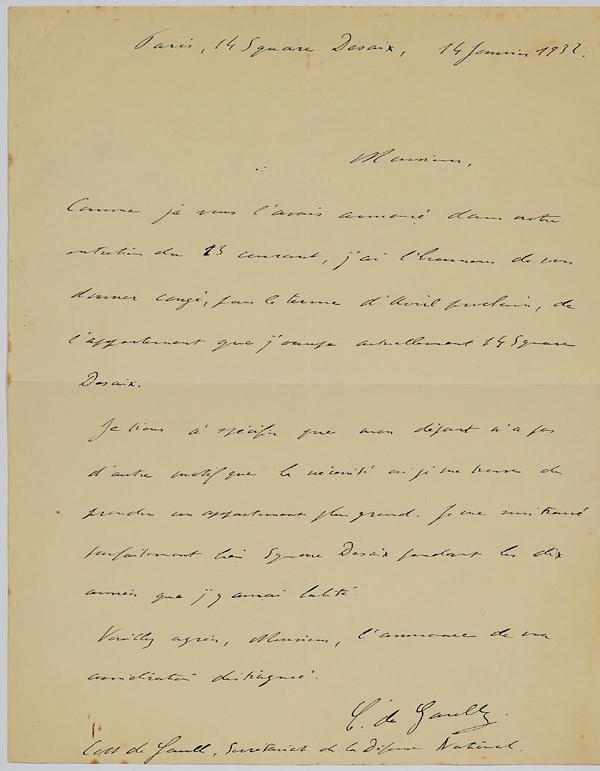 Paris, 14 Square Desaix, 14 Janvier 1932.
Monsieur,
Comme je vous l'avais annoncé dans notre
entretien du 13 courant, j'ai l'honneur de vous
donner congé, pour le terme d'Avril prochain, de
l'appartement que j'occupe actuellement 14 Square
Desaix.
Je tiens à spécifier que mon départ n'a pas
d'autre motif que la nécessité où je me trouve de
prendre un appartement plus grand. Je me suis trouvé
parfaitement bien Square Desaix pendant les dix
années que j'y aurai habité.
Veuillez agréer, Monsieur, l'assurance de ma
considération distinguée.
C. de Gaulle.
de Gaulle, Secrétariat de la Défense Nationale.